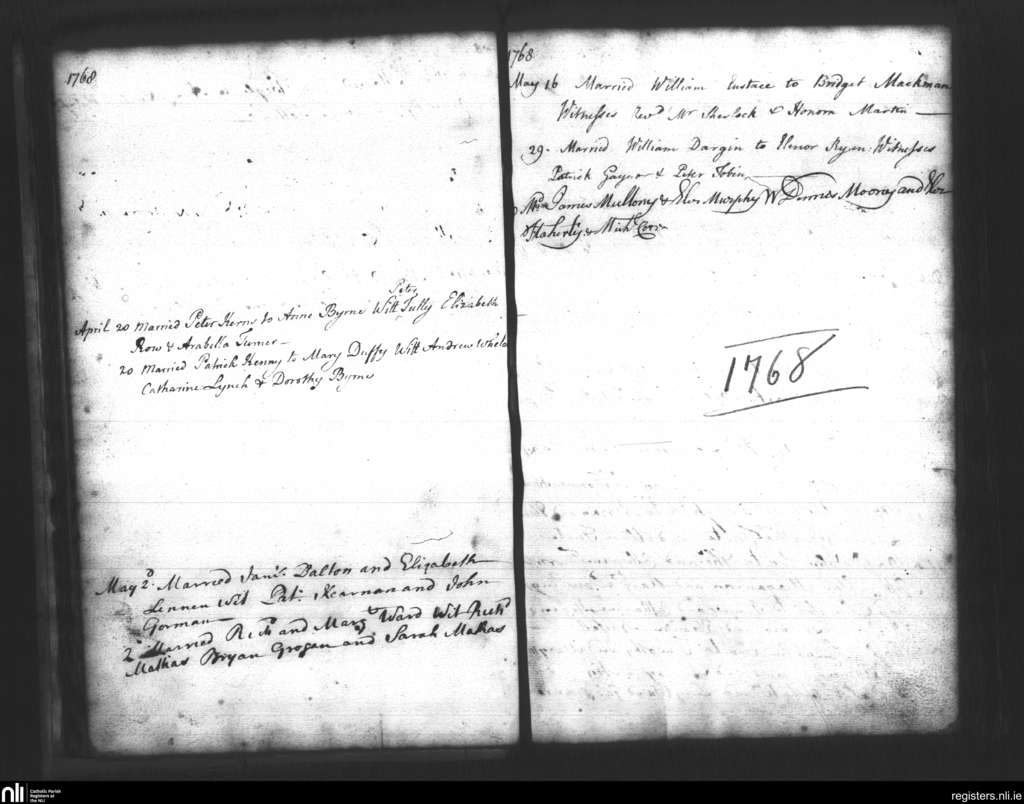 1768
April 20 Married Peter Kerns to Anne Byrne Witt Peter Tully Elizabeth
Row & Arabella Turner
20 Married Patrick Kenny to Mary Duffy Witt Andrew Whela
Catharine Lynch & Dorothy Byrne
May 2d. Married Jams. Dalton and Elizabeth
Lennen Wit Pat: Kearnan and John
Gorman
2d Married Richd and Mary Ward Wit Richd
Mathias Bryan Grogan and Sarah Mathas
1768
May 16 Married William Eustace to Bridget Mackman
Witnesses Revd Mr Sherlock & Honora Martin
29. Married William Dargin to Elenor Ryan Witnesses
Patrick Gaynor & Peter Tobin
James Mullony & Elnr Murphy W Dennis Mooney and
Flaherty & Michl Corr
1768
nli
Catholic Parish
Registers at
the NLI
registers.nli.ie